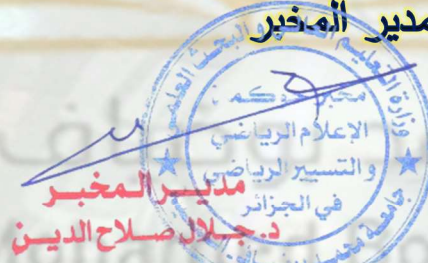 مدير المخبر
وزارة التعليم العالي والبحث العلمي
مخبر حوكمة
الإعلام الرياضي
والتسيير الرياضي
في الجزائر
جامعة محمد
مديـر المخبـر
د. جـلال صـلاح الديـن